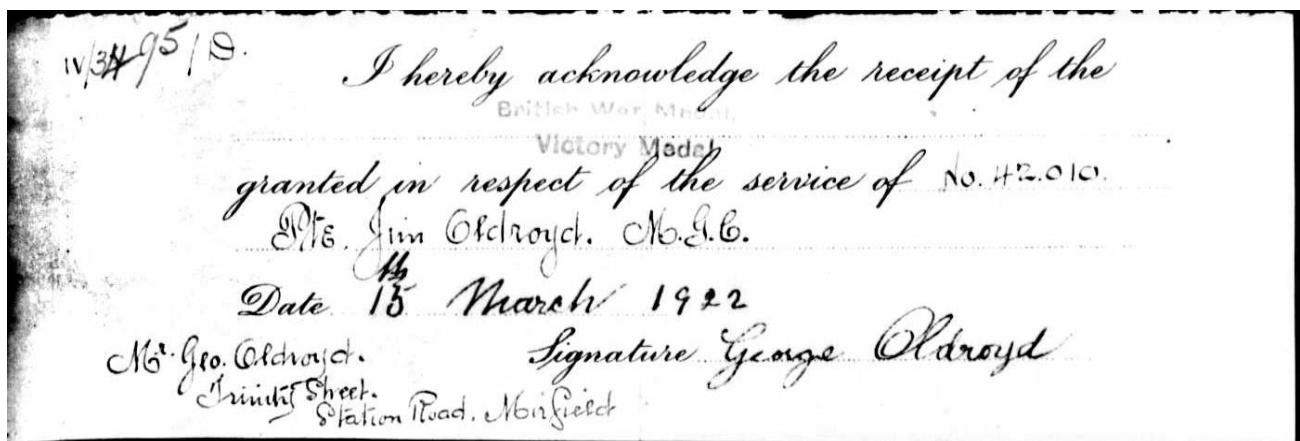 IV/3495/D.
I hereby acknowledge the receipt of the
British War Medal,
Victory Medal
granted in respect of the service of No. 42.010.
Pte. Jim Oldroyd. M.G.C.
Date 15th March 1922
Signature George Oldroyd
Mr. Geo. Oldroyd.
Trinity Street.
Station Road, Mirfield